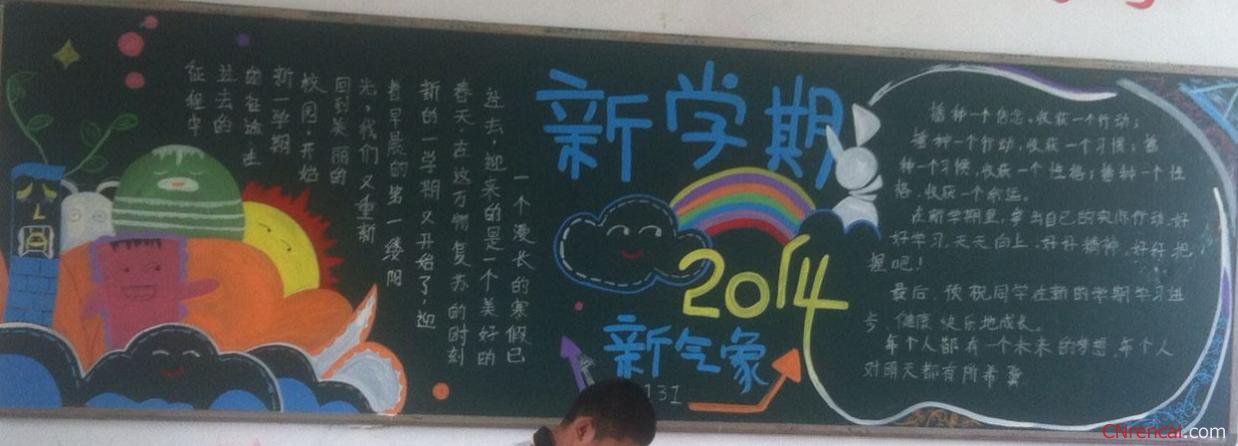 新学期
2014
新气象
131
一个漫长的寒假已
过去，迎来的是一个美好的
春天，在这万物复苏的时刻
新的一学期又开始了，迎
着早晨的第一缕阳
光，我们又重新
回到美丽的
校园，开始
新一学期
的在这
去的
征程中
播种一个信念，收获一个行动；
播种一个行动，收获一个习惯；播
种一个习惯，收获一个性格；播种一个性
格，收获一个命运。
在新学期里，拿出自己的实际行动，好
好学习，天天向上，好好精神，好好把
握吧！
最后，预祝同学在新的学期学习进
步，健康快乐地成长。
每个人都有一个未来的梦想，每个人
对明天都有所希冀
CNrencai.com